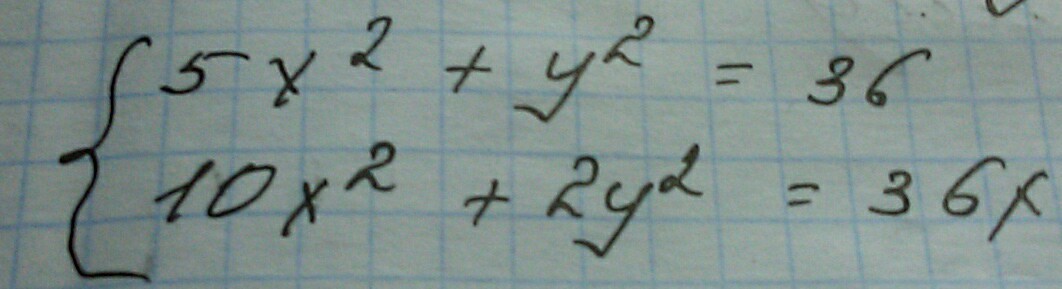 5x² + y² = 36
10x² + 2y² = 36x